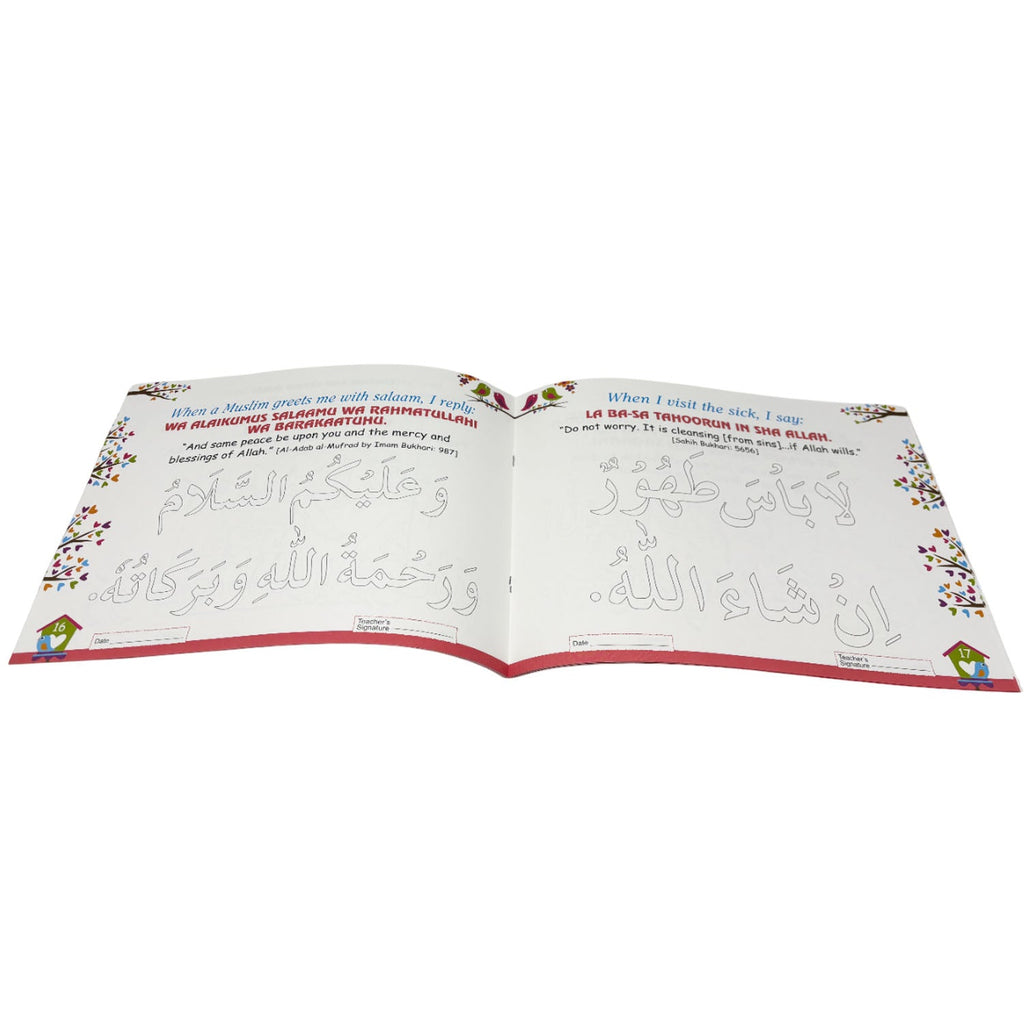 When a Muslim greets me with salaam, I reply:
WA ALAIKUMUS SALAAMU WA RAHMATULLAHI
WA BARAKAATUHU.
"And same peace be upon you and the mercy and
blessings of Allah." [Al-Adab al-Mufrad by Imam Bukhari: 987]
وَعَلَيْكُمُ السَّلَامُ
وَرَحْمَةُ اللّٰهِ وَبَرَكَاتُهُ.
Date
Teacher's
Signature
16
When I visit the sick, I say:
LA BA-SA TAHOORUN IN SHA ALLAH.
"Do not worry. It is cleansing [from sins]...if Allah wills."
[Sahih Bukhari: 5656]
لَا بَأْسَ طَهُوْرٌ
اِنْ شَاءَ اللّٰهُ.
Date
Teacher's
Signature
17